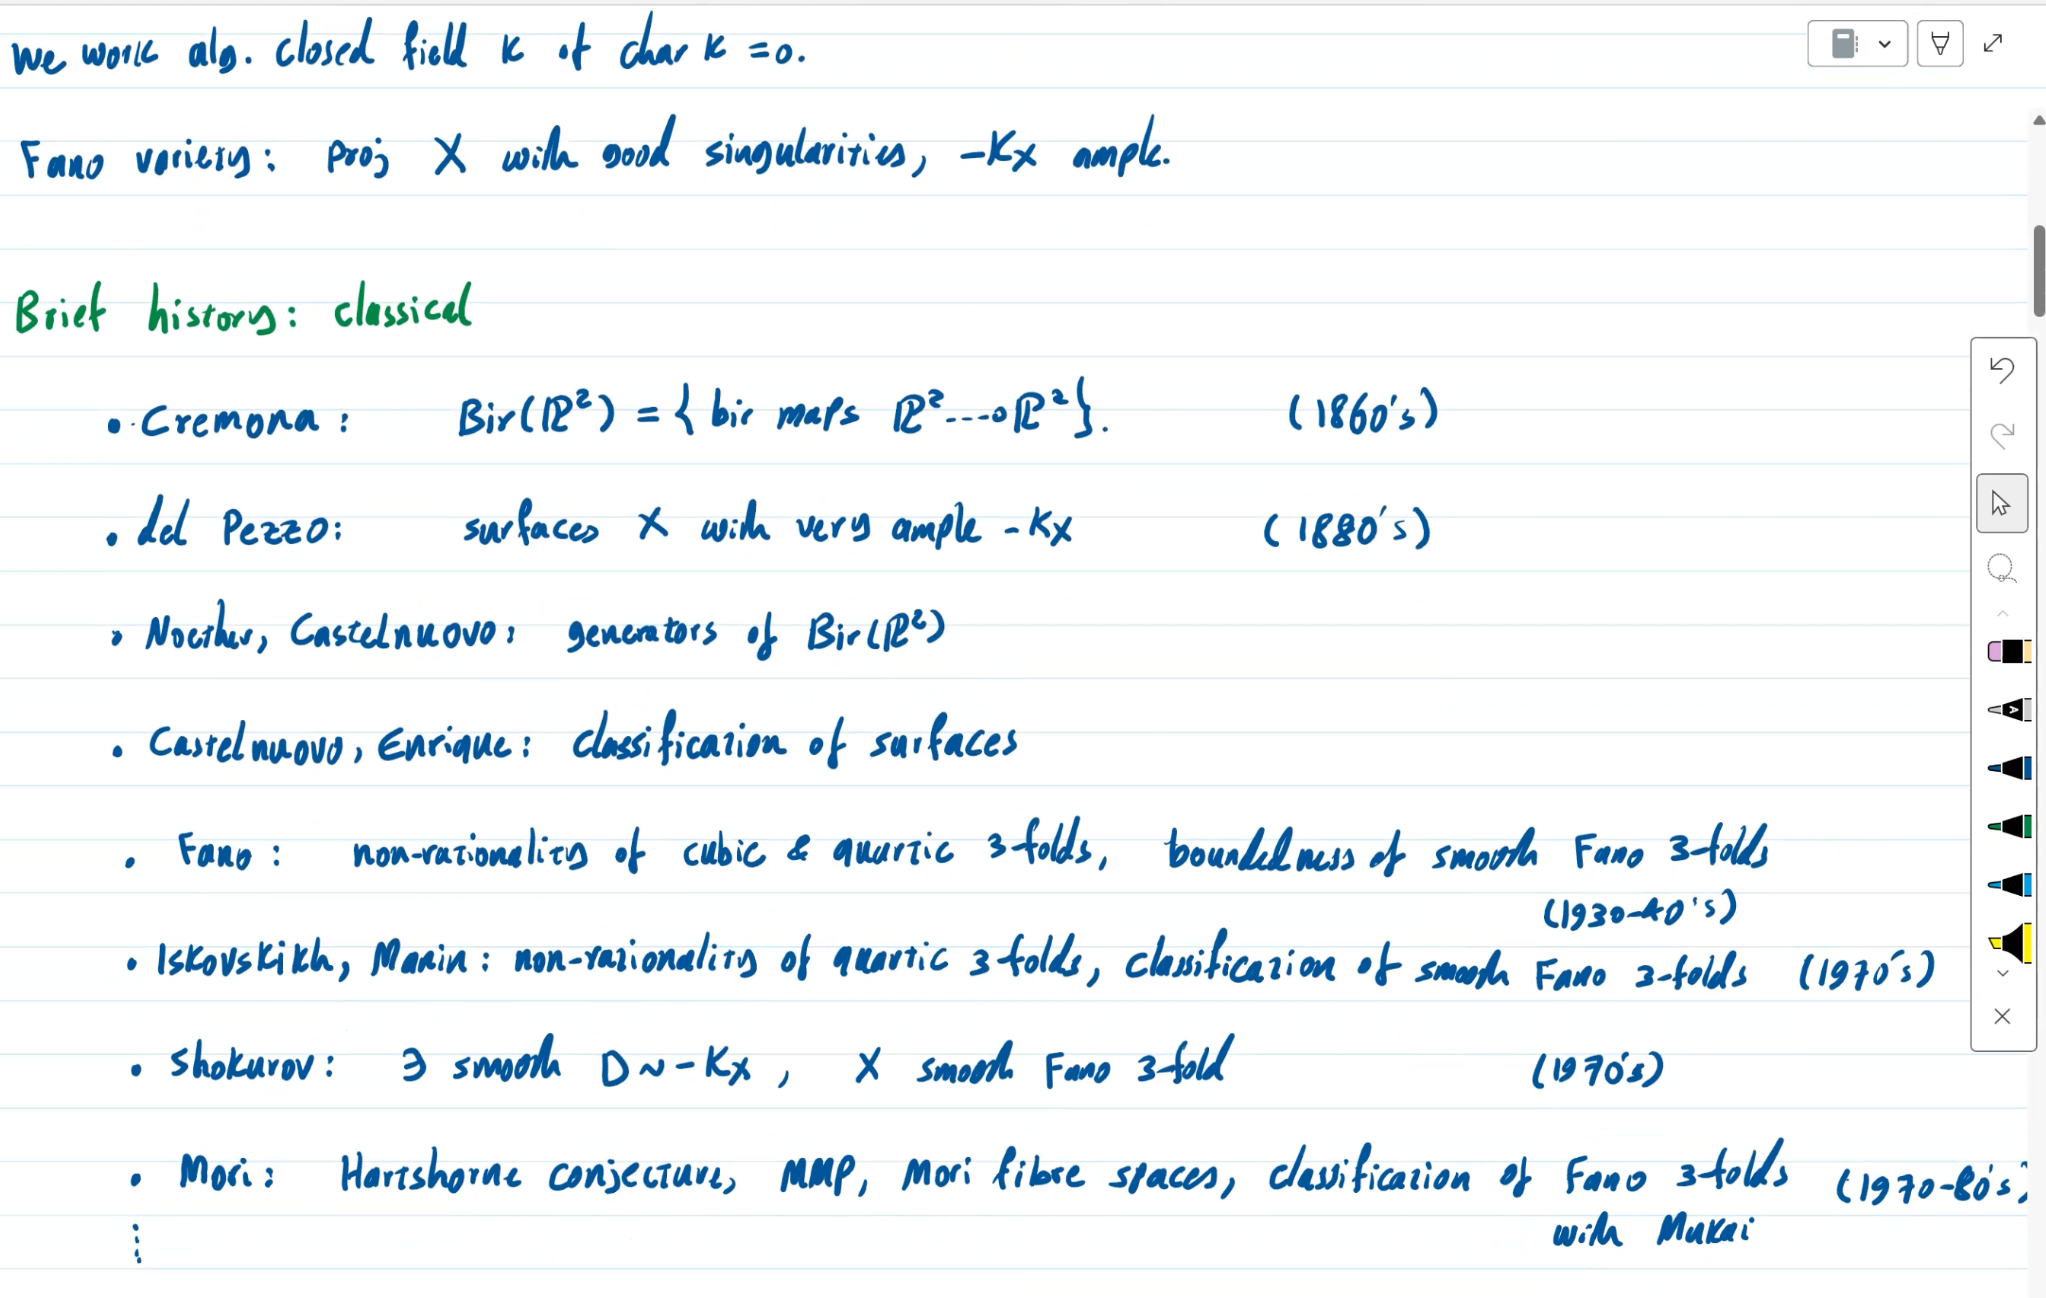 We work alg. closed field k of char k = 0.
Fano variety: proj X with good singularities, -Kx ample.
Brief history: classical
• Cremona: Bir(ℙ²) = { bir maps ℙ² ---> ℙ² }. (1860's)
• del Pezzo: surfaces X with very ample -Kx (1880's)
• Noether, Castelnuovo: generators of Bir(ℙ²)
• Castelnuovo, Enrique: classification of surfaces
• Fano: non-rationality of cubic & quartic 3-folds, boundedness of smooth Fano 3-folds
(1930-40's)
• Iskovskikh, Manin: non-rationality of quartic 3folds, classification of smooth Fano 3-folds (1970's)
• Shokurov: ∃ smooth D ~ -Kx, X smooth Fano 3-fold (1970's)
• Mori: Hartshorne conjecture, MMP, Mori fibre spaces, classification of Fano 3-folds (1970-80's)
with Mukai
⋮